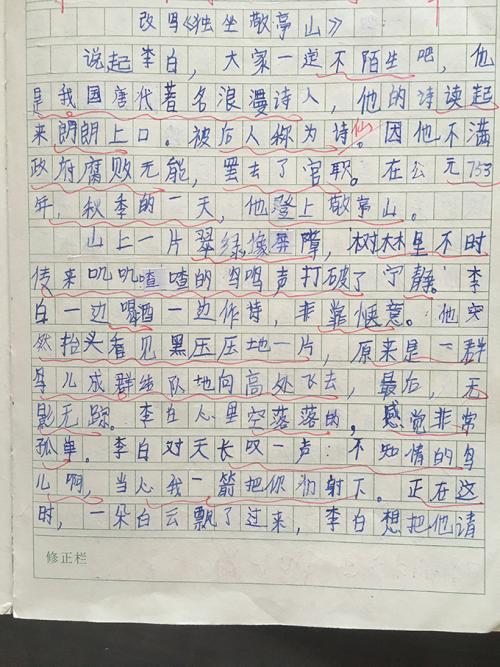 改写《独坐敬亭山》
说起李白，大家一定不陌生吧，他
是我国唐代著名浪漫诗人，他的诗读起
来朗朗上口。被后人称为诗仙。因他不满
政府腐败无能，罢去了官职。在公元753
年，秋季的一天，他登上敬亭山。
山上一片翠绿像屏障，树林里不时
传来叽叽喳喳的鸟鸣声打破了宁静。李
白一边喝酒一边作诗，非常惬意。他突
然抬头看见黑压压地一片，原来是一群
鸟儿成群结队地向高处飞去，最后，无
影无踪。李白心里空落落的，感觉非常
孤单。李白对天长叹一声：不知情的鸟
儿啊，当心我一箭把你们射下。正在这
时，一朵白云飘了过来，李白想把他请
修正栏